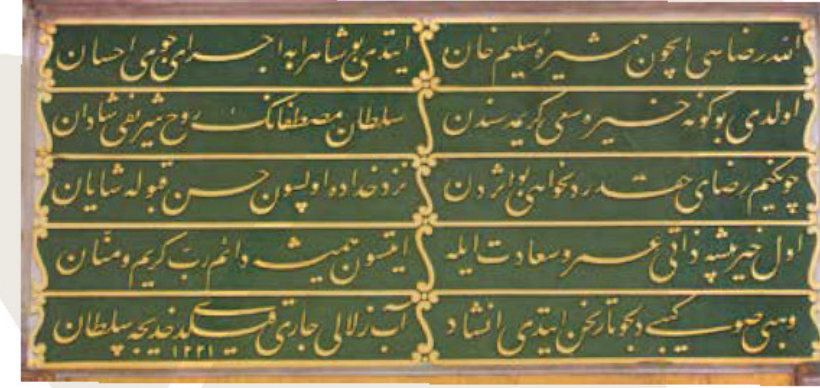 الله رضاسی ایچون همشیرهٔ سلیم خان ایتدی بو شاهراها اجرای جوی احسان
اولدی بو گونه خیر و سعی کریمه سندن سلطان مصطفانك روح شریفی شادان
چونکیم رضای حقدر دلخواهی بو اثردن نزد خداده اولسون حسن قبوله شایان
اول خیر پیشه ذاتی عمر و سعادت ایله ایتسون همیشه دائم رب کریم و منّان
وهبی صو کیبی دلجو تاریخن ایتدی انشاد آب زلالی جاری قیلدی خدیجه سلطان
١٢٢١